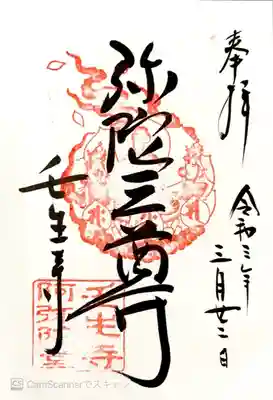 奉拝
令和三年
三月廿二日
弥陀三尊
壬生寺
壬生寺
阿弥陀堂
CS CamScannerでスキャン